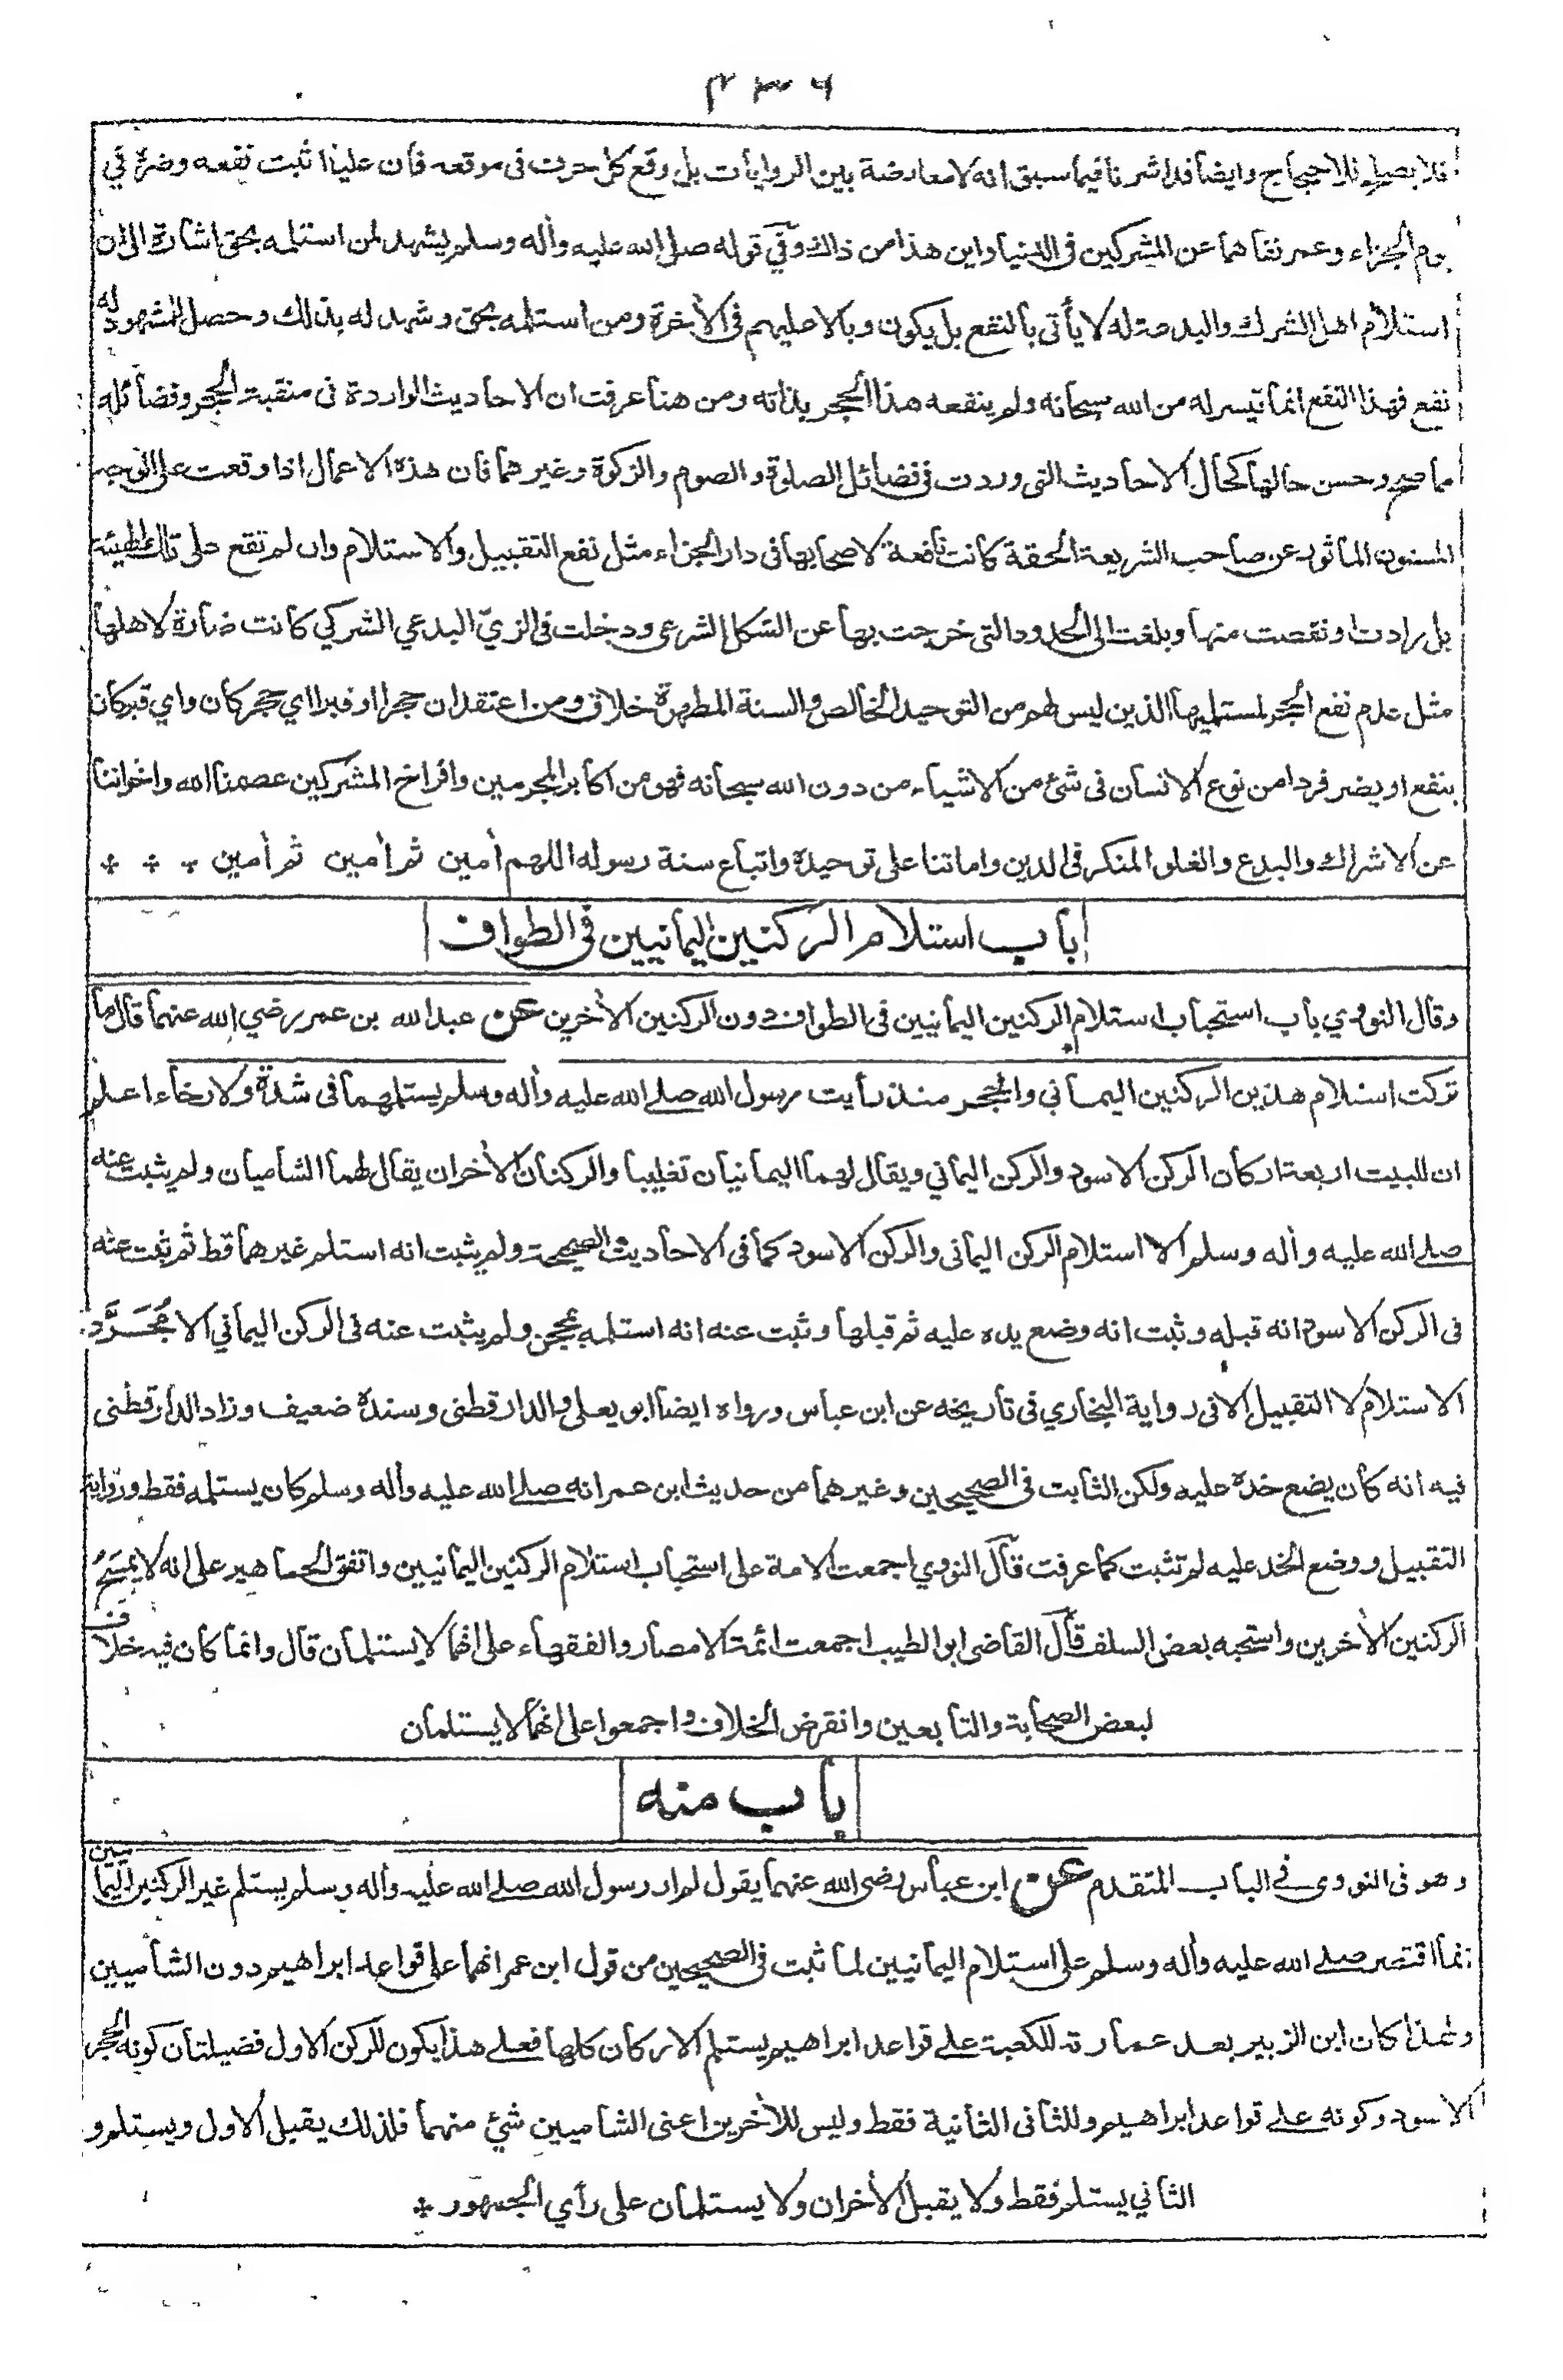 ٤٣٦
فلا يصلح للاحتجاج وايضا قد اشرنا فيما سبق انه لا معارضة بين الروايات بل وقع كل حرف فى موقعه فان عليا اثبت نفعه وضره في
يوم الجزاء وعمر نفاهما عن المشركين فى الدنيا واين هذا من ذاك وفي قوله صلى الله عليه وأله وسلم يشهد لمن استلمه بحق اشارة الى ان
استلام اهل الشرك والبدعة له لا يأتى بالنفع بل يكون وبالا عليهم فى الأخرة ومن استلمه بحق وشهد له بذلك وحصل للمشهود له
نفع فهذا النفع انما تيسر له من الله سبحانه ولم ينفعه هذا الحجر بذاته ومن هنا عرفت ان الاحاديث الواردة فى منقبة الحجر وفضائله
مما صح وحسن حالها كحال الاحاديث التى وردت فى فضائل الصلوة والصوم والزكوة وغيرهما فان هذه الاعمال اذا وقعت على الوجه
المسنون الماثور عن صاحب الشريعة الحقة كانت نافعة لاصحابها فى دار الجزاء مثل نفع التقبيل والاستلام وان لم تقع على تلك الهيئة
بل زادت او نقصت منها وبلغت الى الحدود التى خرجت بها عن الشكل الشرعى ودخلت فى الزيّ البدعي الشركي كانت ضارة لاهلها
مثل عدم نفع الحجر لمستلميها الذين ليس لهم من التوحيد الخالص والسنة المطهرة خلاق ومن اعتقد ان حجرا او قبرا اي حجر كان واي قبر كان
ينفع او يضر فردا من نوع الانسان فى شئ من الاشياء من دون الله سبحانه فهو من اكابر المجرمين وافراخ المشركين عصمنا الله واخواننا
عن الاشراك والبدع والغلو المنكر فى الدين واماتنا على توحيده واتباع سنة رسوله اللهم أمين ثم أمين ثم أمين * * *
باب استلام الركنين اليمانيين فى الطواف
وقال النووي باب استحباب استلام الركنين اليمانيين فى الطواف دون الركنين الأخرين عن عبد الله بن عمر رضي الله عنهما قال ما
تركت استلام هذين الركنين اليماني والحجر منذ رأيت رسول الله صلى الله عليه وأله وسلم يستلمهما فى شدة ولا رخاء اعلم
ان للبيت اربعة اركان الركن الاسود والركن اليماني ويقال لهما اليمانيان تغليبا والركنان الأخران يقال لهما الشاميان ولم يثبت عنه
صلى الله عليه وأله وسلم الا استلام الركن اليمانى والركن الاسود كما فى الاحاديث الصحيحة ولم يثبت انه استلم غيرهما قط ثم ثبت عنه
فى الركن الاسود انه قبله وثبت انه وضع يده عليه ثم قبلها وثبت عنه انه استلمه بمحجن ولم يثبت عنه فى الركن اليماني الا مُجَرَّد
الاستلام لا التقبيل الا فى رواية البخاري فى تاريخه عن ابن عباس ورواه ايضا ابو يعلى والدارقطنى وسنده ضعيف وزاد الدارقطنى
فيه انه كان يضع خده عليه ولكن الثابت فى الصحيحين وغيرهما من حديث ابن عمر انه صلى الله عليه وأله وسلم كان يستلمه فقط ورواية
التقبيل ووضع الخد عليه لم تثبت كما عرفت قال النووي اجمعت الامة على استحباب استلام الركنين اليمانيين واتفق الجماهير على انه لا يمسح
الركنين الأخرين واستحبه بعض السلف قال القاضى ابو الطيب اجمعت ائمة الامصار والفقهاء على انهما لا يستلمان قال وانما كان فيه خلاف
لبعض الصحابة والتابعين وانقرض الخلاف واجمعوا على انهما لا يستلمان
باب منه
وهو فى النووى فى الباب المتقدم عن ابن عباس رضى الله عنهما يقول لم ار رسول الله صلى الله عليه وأله وسلم يستلم غير الركنين اليمانيين
انما اقتصر صلى الله عليه وأله وسلم على استلام اليمانيين لما ثبت فى الصحيحين من قول ابن عمر انهما على قواعد ابراهيم دون الشاميين
ولهذا كان ابن الزبير بعد عمارته للكعبة على قواعد ابراهيم يستلم الاركان كلها فعلى هذا يكون للركن الاول فضيلتان كونه الحجر
الاسود وكونه على قواعد ابراهيم وللثانى الثانية فقط وليس للأخرين اعنى الشاميين شئ منهما فلذلك يقبل الاول ويستلم و
الثاني يستلم فقط ولا يقبل الأخران ولا يستلمان على رأي الجمهور *